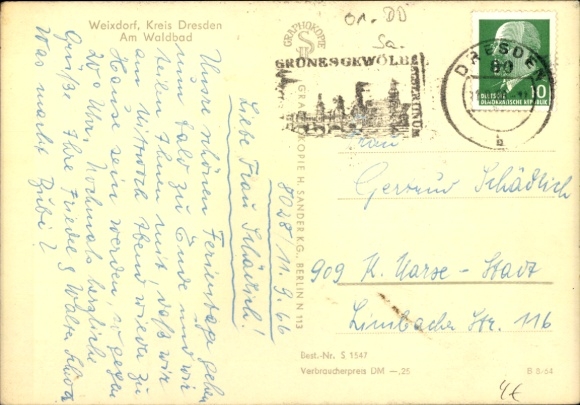 Weixdorf, Kreis Dresden
Am Waldbad
01. DD
Sa.
GRAPHOKOPIE
GRÜNES GEWÖLBE
DRESDEN
DEUTSCHE
DEMOKRATISCHE REPUBLIK
10
GRAPHOKOPIE H. SANDER KG., BERLIN N 113
8028/11.9.66
Liebe Frau Schädlich!
Unsre schönen Ferientage gehen
nun bald zu Ende und wir
teilen Ihnen mit, daß wir
am Mittwoch Abend wieder zu
Hause sein werden, so gegen
20 Uhr. Nochmals herzliche
Grüße Ihre Friedel & Walter
Was macht Bubi?
Frau
Gertrud Schädlich
909 K. Marx-Stadt
Limbacher Str. 116
Best.-Nr. S 1547
Verbraucherpreis DM -,25
B 8/64
4€